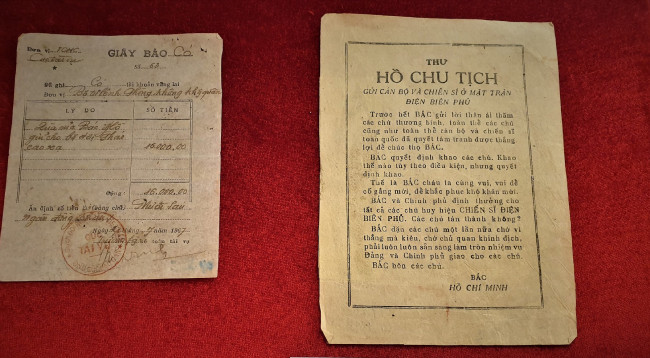 GIẤY BÁO Có
Số 62
Đã ghi Có tài khoản vãng lai
Đơn vị
LÝ DO
SỐ TIỀN
Quà mà Bác Hồ
16.000,00
Cộng: 16.000,00
1967
THƯ
HỒ CHU TỊCH
GỬI CÁN BỘ VÀ CHIẾN SĨ Ở MẶT TRẬN
ĐIỆN BIÊN PHỦ
Trước hết BÁC gửi lời thân ái thăm
các chú thương binh, toàn thể các chú
cũng như toàn thể cán bộ và chiến sĩ
toàn quốc đã quyết tâm tranh được thắng
lợi để chúc thọ BÁC.
BÁC quyết định khao các chú. Khao
thế nào tùy theo điều kiện, nhưng quyết
định khao.
Thế là BÁC cháu ta cùng vui, vui để
cố gắng mới, để khắc phục khó khăn mới.
BÁC và Chính phủ định thưởng cho
tất cả các chú huy hiệu CHIẾN SĨ ĐIỆN
BIÊN PHỦ. Các chú tán thành không?
BÁC dặn các chú một lần nữa chớ vì
thắng mà kiêu, chớ chủ quan khinh địch,
phải luôn luôn sẵn sàng làm tròn nhiệm vụ
Đảng và Chính phủ giao cho các chú.
BÁC hôn các chú.
BÁC
HỒ CHÍ MINH